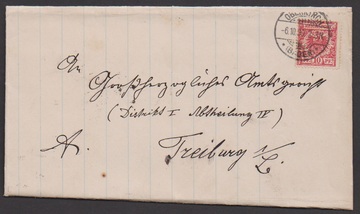 An
Großherzogliches Amtsgericht
(Distrikt I Abtheilung IV)
Freiburg i/B.
10